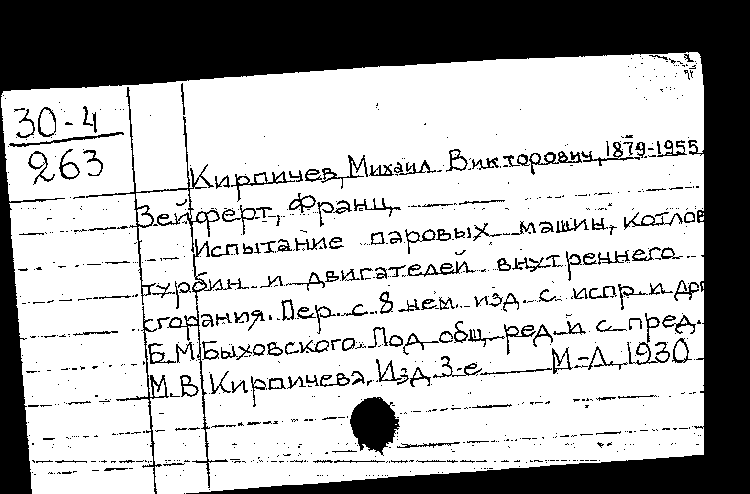 30-4
263
Кирпичев, Михаил Викторович, 1879-1955.
Зейферт, Франц,
Испытание паровых машин, котлов
турбин и двигателей внутреннего
сгорания. Пер. с 8 нем. изд. с испр. и доп.
Б.М. Быховского. Под общ. ред. и с пред.
М.В. Кирпичева. Изд. 3-е. М-Л., 1930